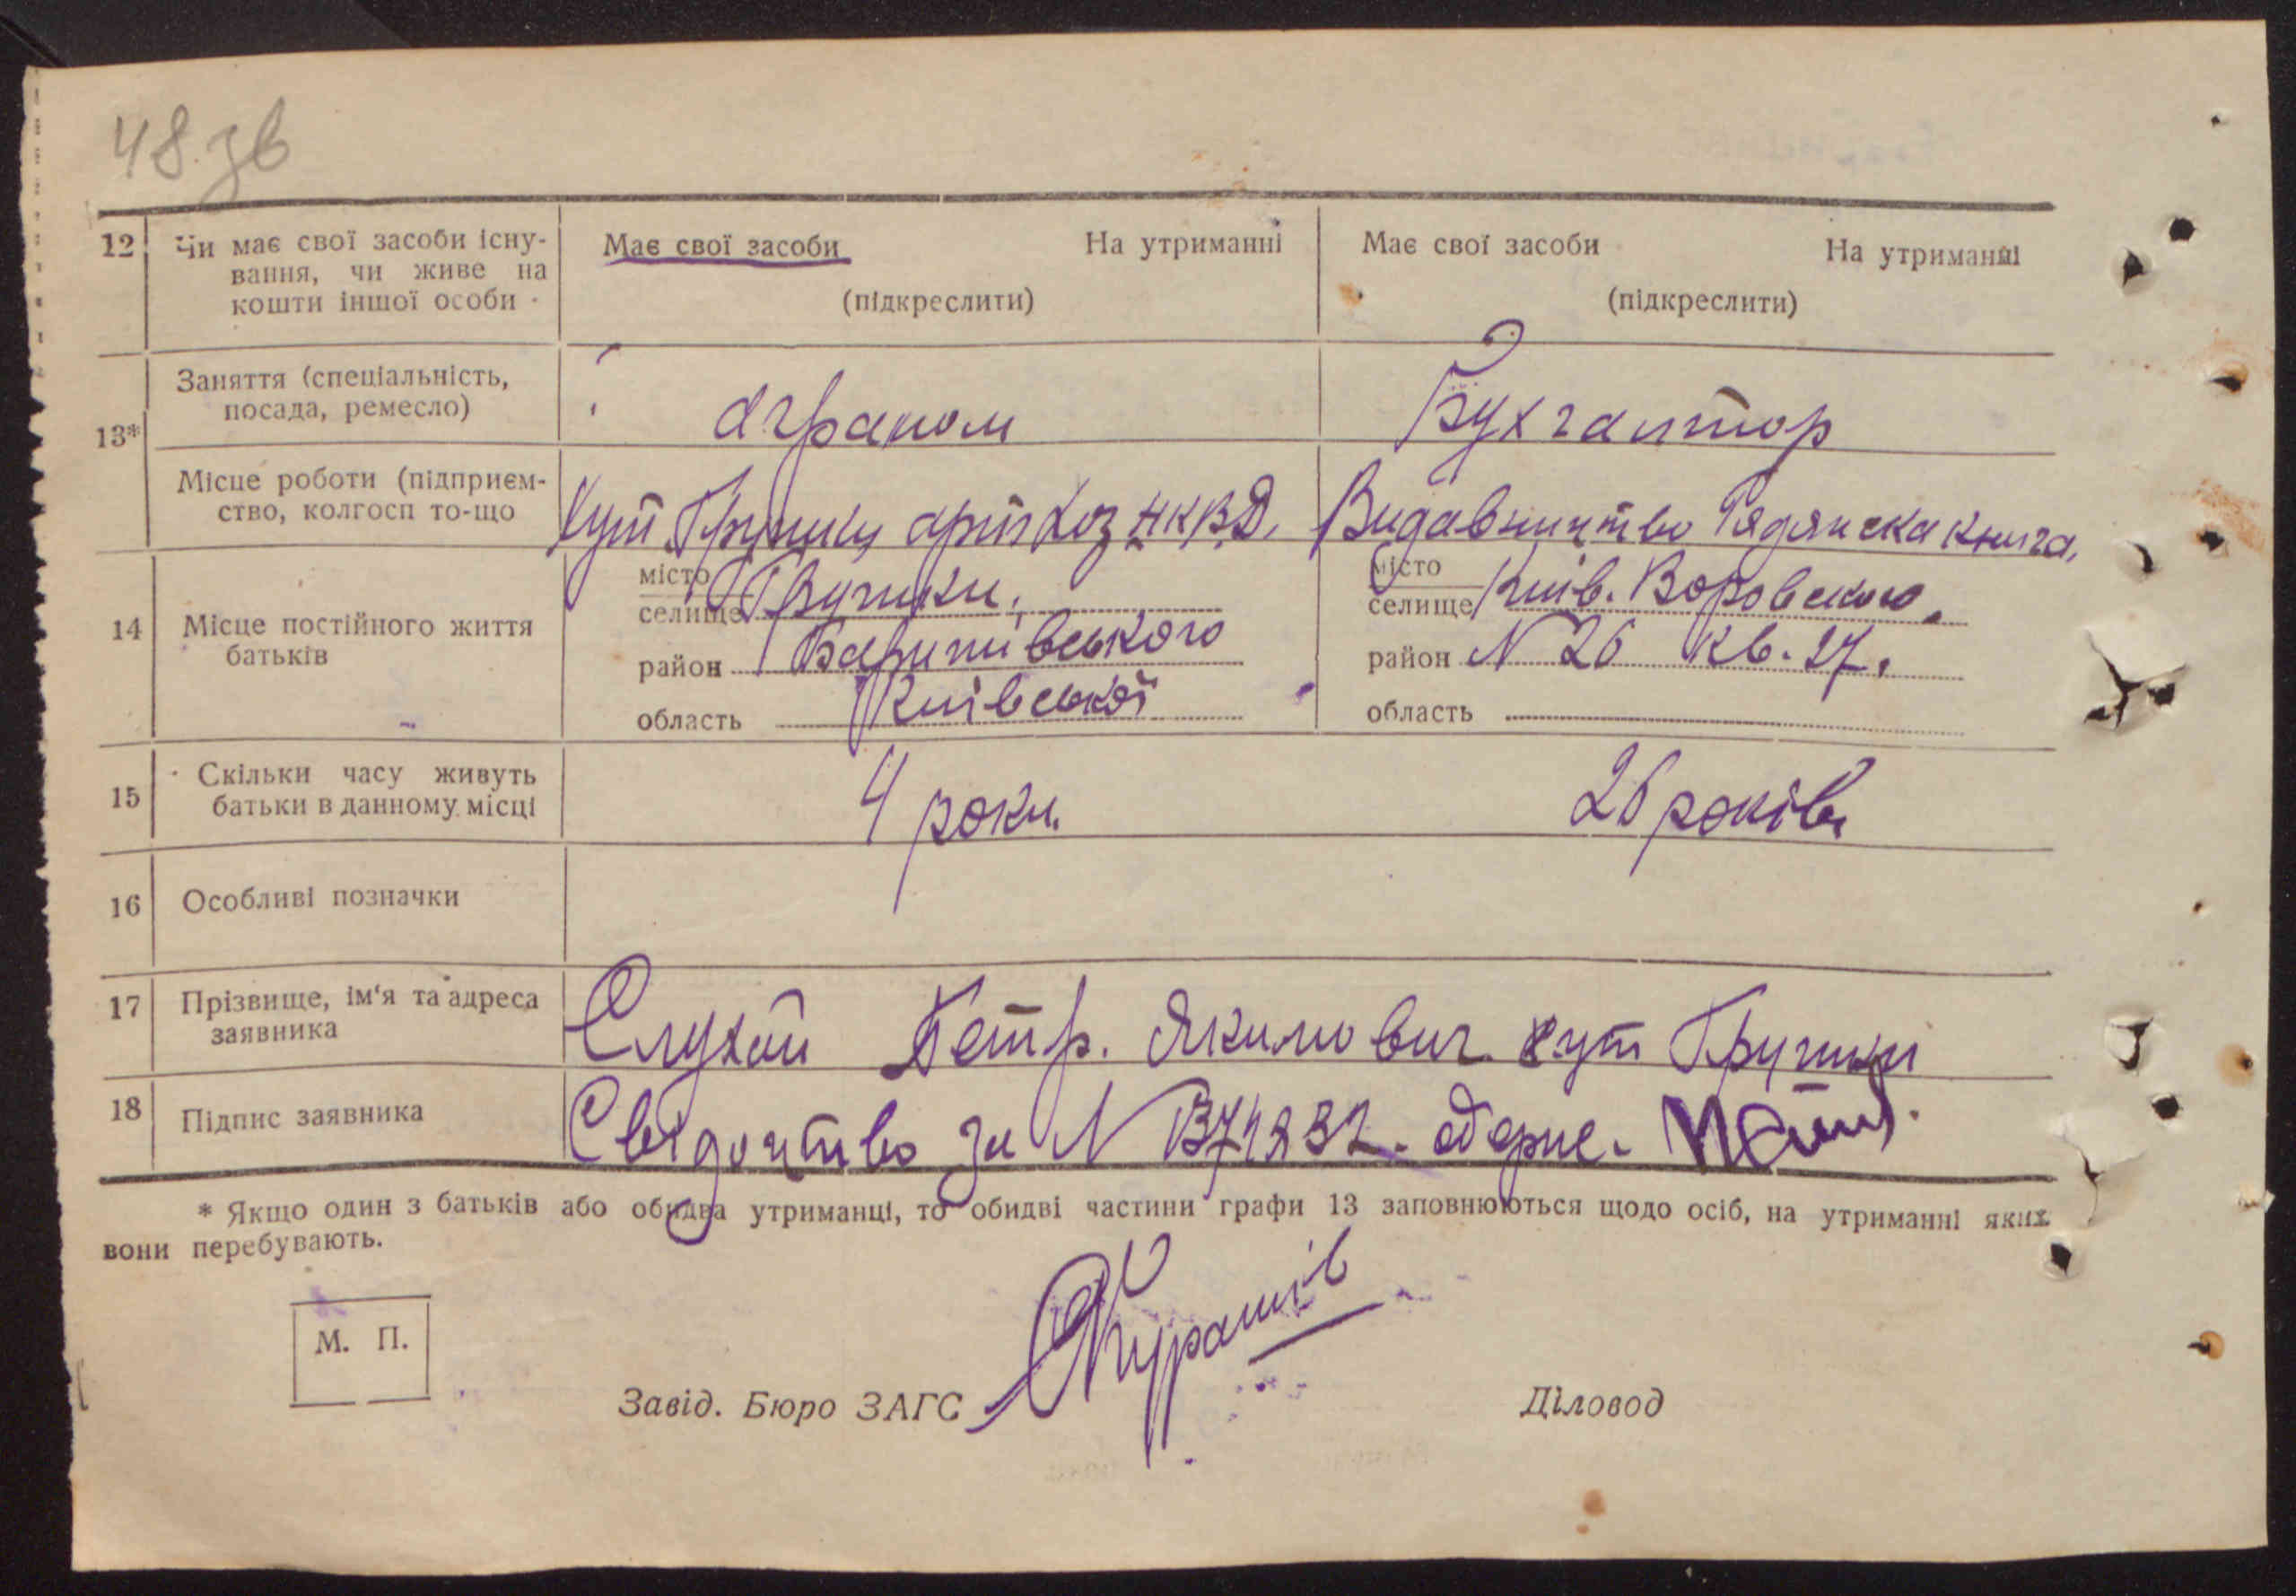 48 зв
12 Чи має свої засоби існу- Має свої засоби На утриманні Має свої засоби На утриманні
вання, чи живе на
кошти іншої особи (підкреслити) (підкреслити)
Заняття (спеціальність,
посада, ремесло) аграном Бухгалтор
13*
Місце роботи (підприєм-
ство, колгосп то-що Хут Грушки НКВД. Видавництво Радянска книга,
місто місто
селище Грушки, селище Київ. Воровского,
14 Місце постійного життя
батьків район Баришівського район N 26 кв. 27.
область Київської область
15 Скільки часу живуть 4 роки. 26 років
батьки в данному місці
16 Особливі позначки
17 Прізвище, ім'я та адреса Слухай Петр. Якимович хут Грушки
заявника
18 Підпис заявника Свідоцтво за N одерже.
* Якщо один з батьків або обидва утриманці, то обидві частини графи 13 заповнюються щодо осіб, на утриманні яких
вони перебувають.
М. П.
Завід. Бюро ЗАГС Діловод